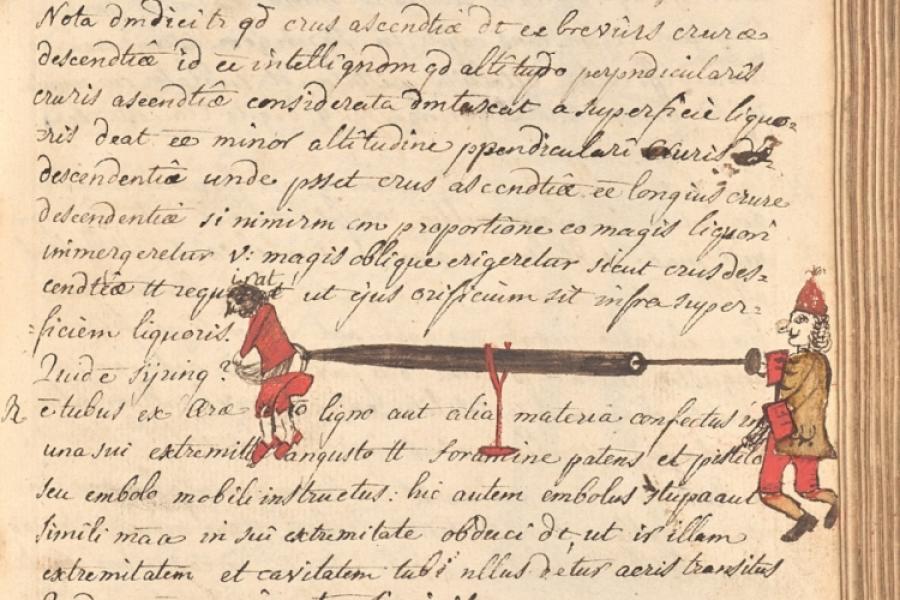 Nota dmdicitr qd crus ascendtiæ dt ee breviùs crure
descendtiæ id eē intellignom qd altitudo perpndicularis
cruris ascendtiæ considerata dmtaxat a superficie liquo=
ris deat ee minor altitudine ppendiculari cruris de=
descendentiæ unde psset crus ascendtiæ ee longius crure
descendentiæ si nimirm cm proportione eo magis liquori
immergeretur v: magis oblique erigeretur sicut crus des=
cendtiæ tt ut ejus orificium sit infra super=
ficiem liquoris.
Quid ē syring?
R ē tubus ex ære ligno aut alia materia confectus in
una sui extremitt angusto tt foramine patens et pistilo
seu embolo mobili instructus: hic autem embolus stupa aut
simili māa in sui extremitate obduci dt, ut ir illam
extremitatem et cavitatem tubi nllus detur aeris transitus